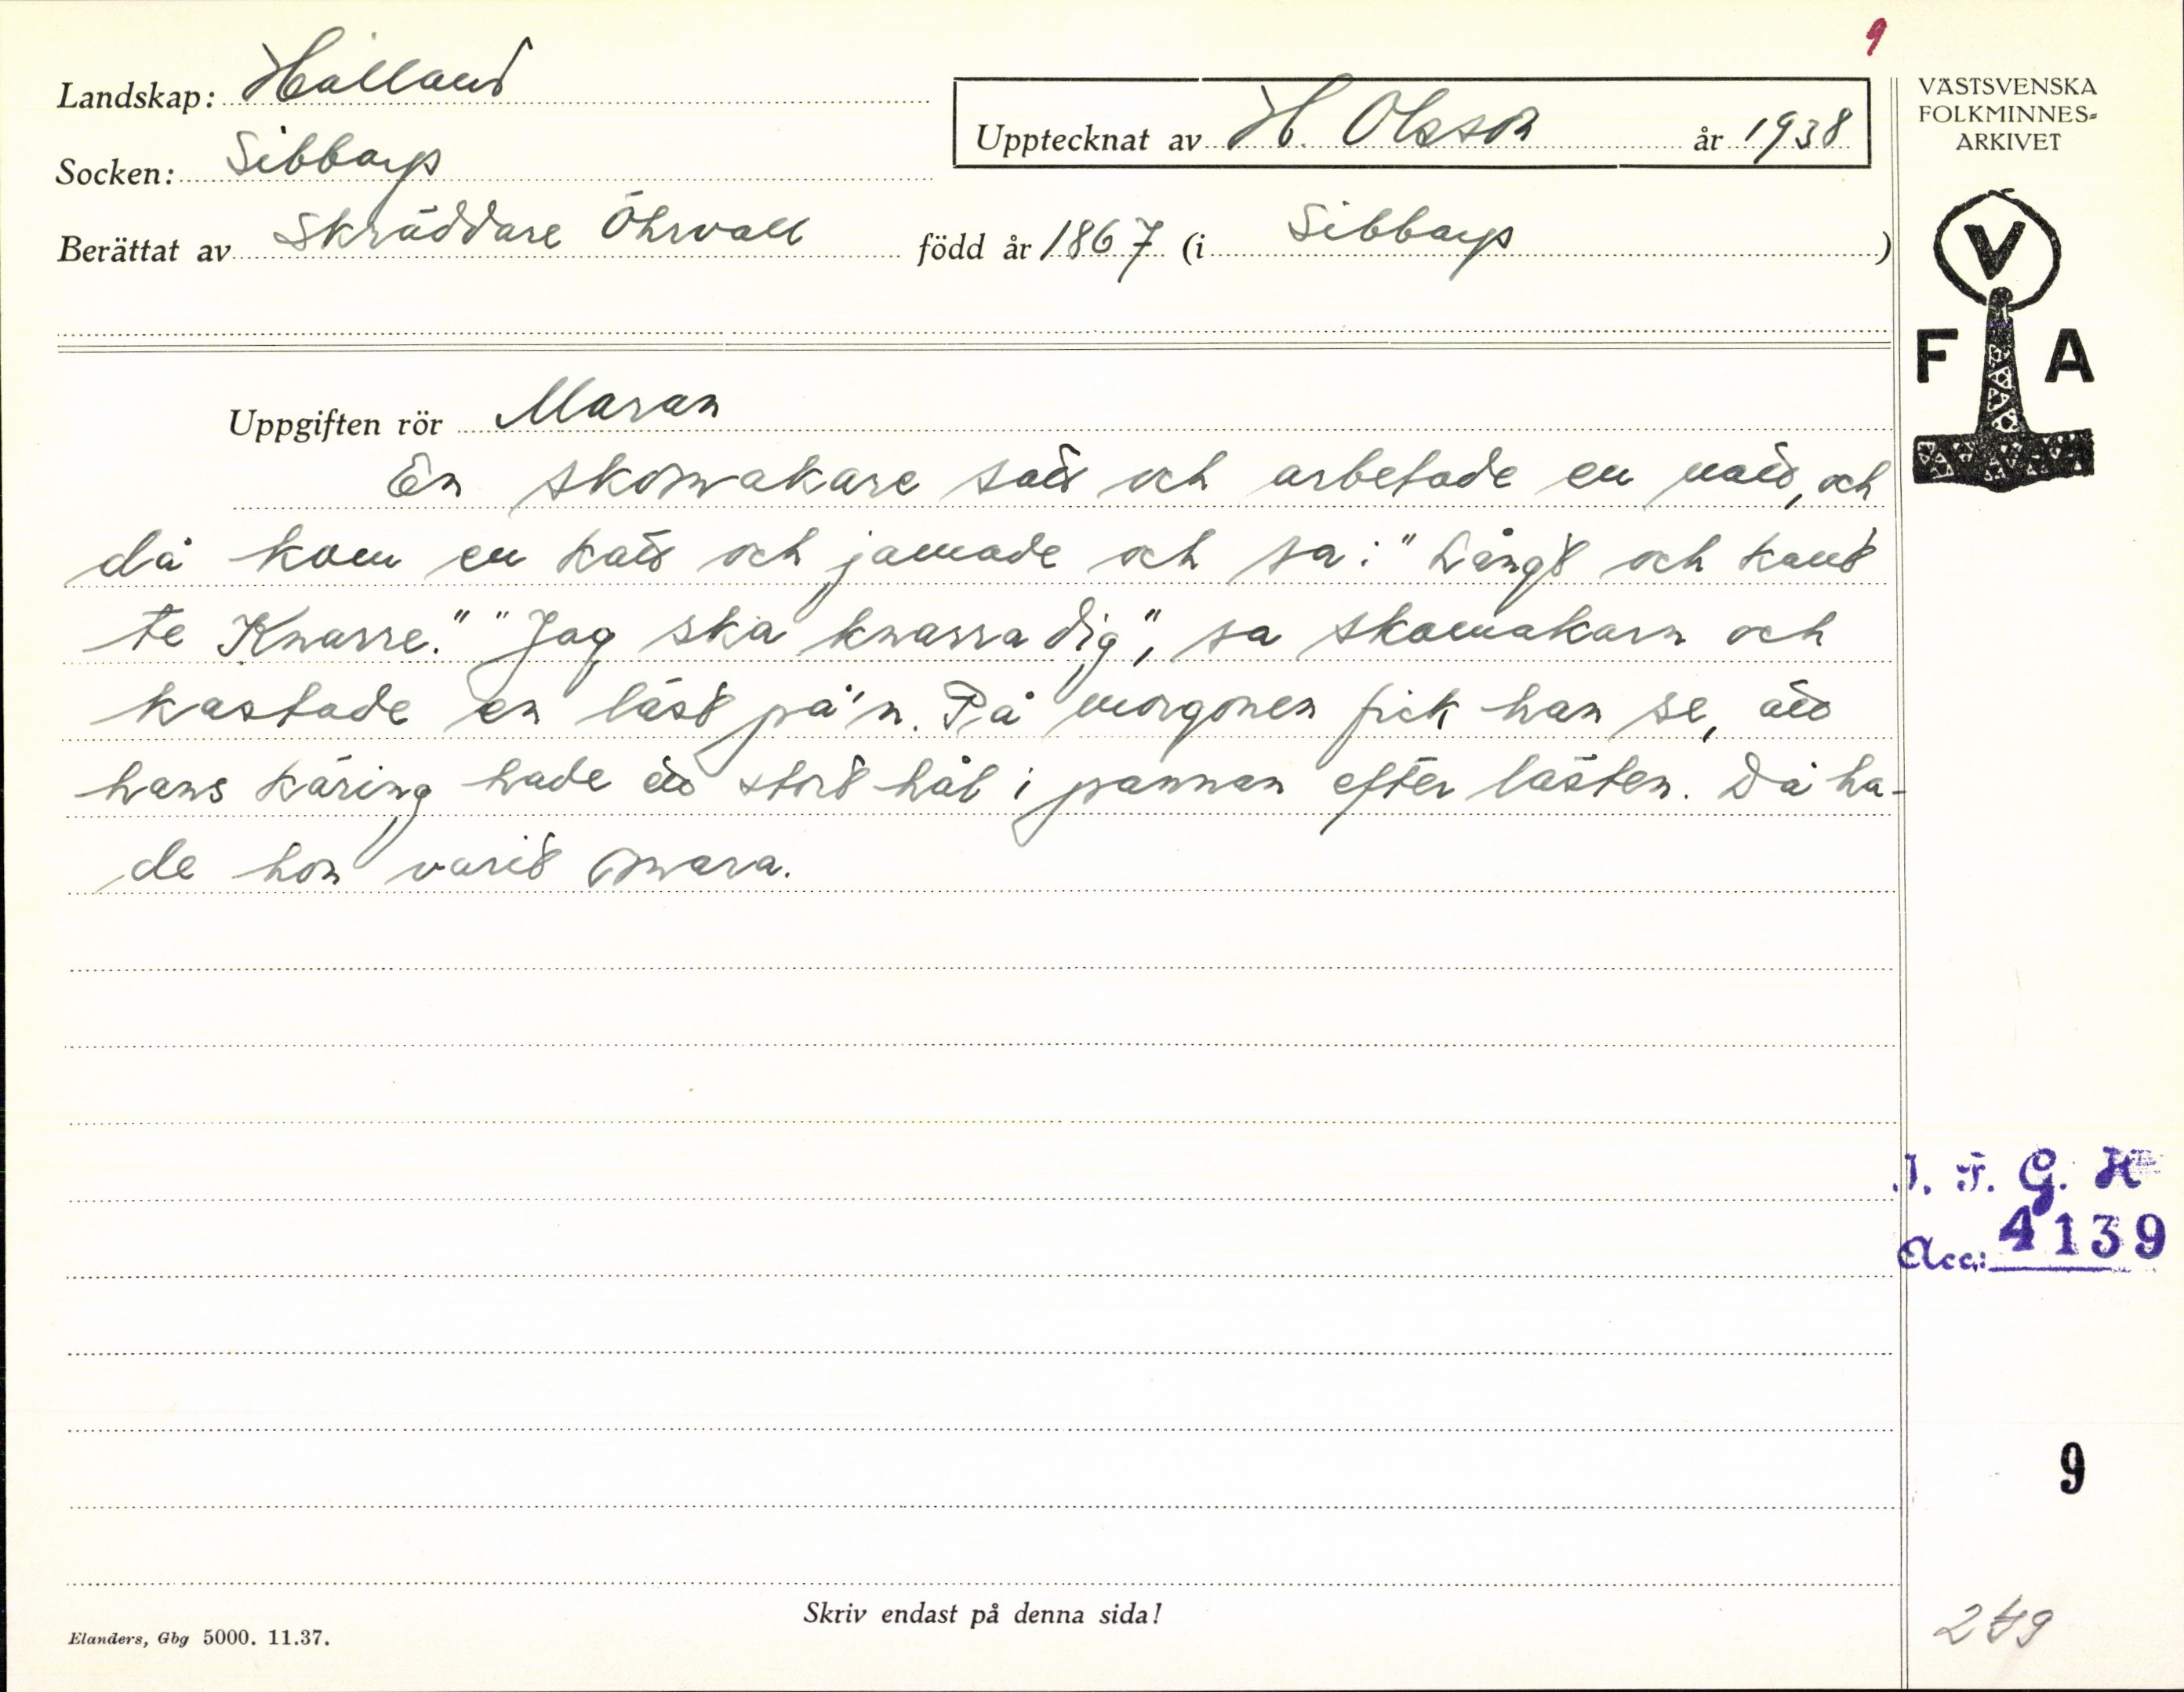 9
Landskap: Halland
Socken: Sibbarp
Upptecknat av H. Olsson år 1938
Berättat av Skräddare Öhrvall född år 1867 (i Sibbarp)
VÄSTSVENSKA
FOLKMINNES-
ARKIVET
V
F A
Uppgiften rör Maran
En skomakare satt och arbetade en natt, och
då kom en katt och jamade och sa: "Långt och kant
te Knarre." "Jag ska knarra dig", sa skomakarn och
kastade en läst på'n. På morgonen fick han se, att
hans käring hade ett stort hål i pannan efter lästen. Då ha-
de hon varit mara.
I. F. G. H
Acc: 4139
9
Skriv endast på denna sida!
Elanders, Gbg 5000. 11.37.